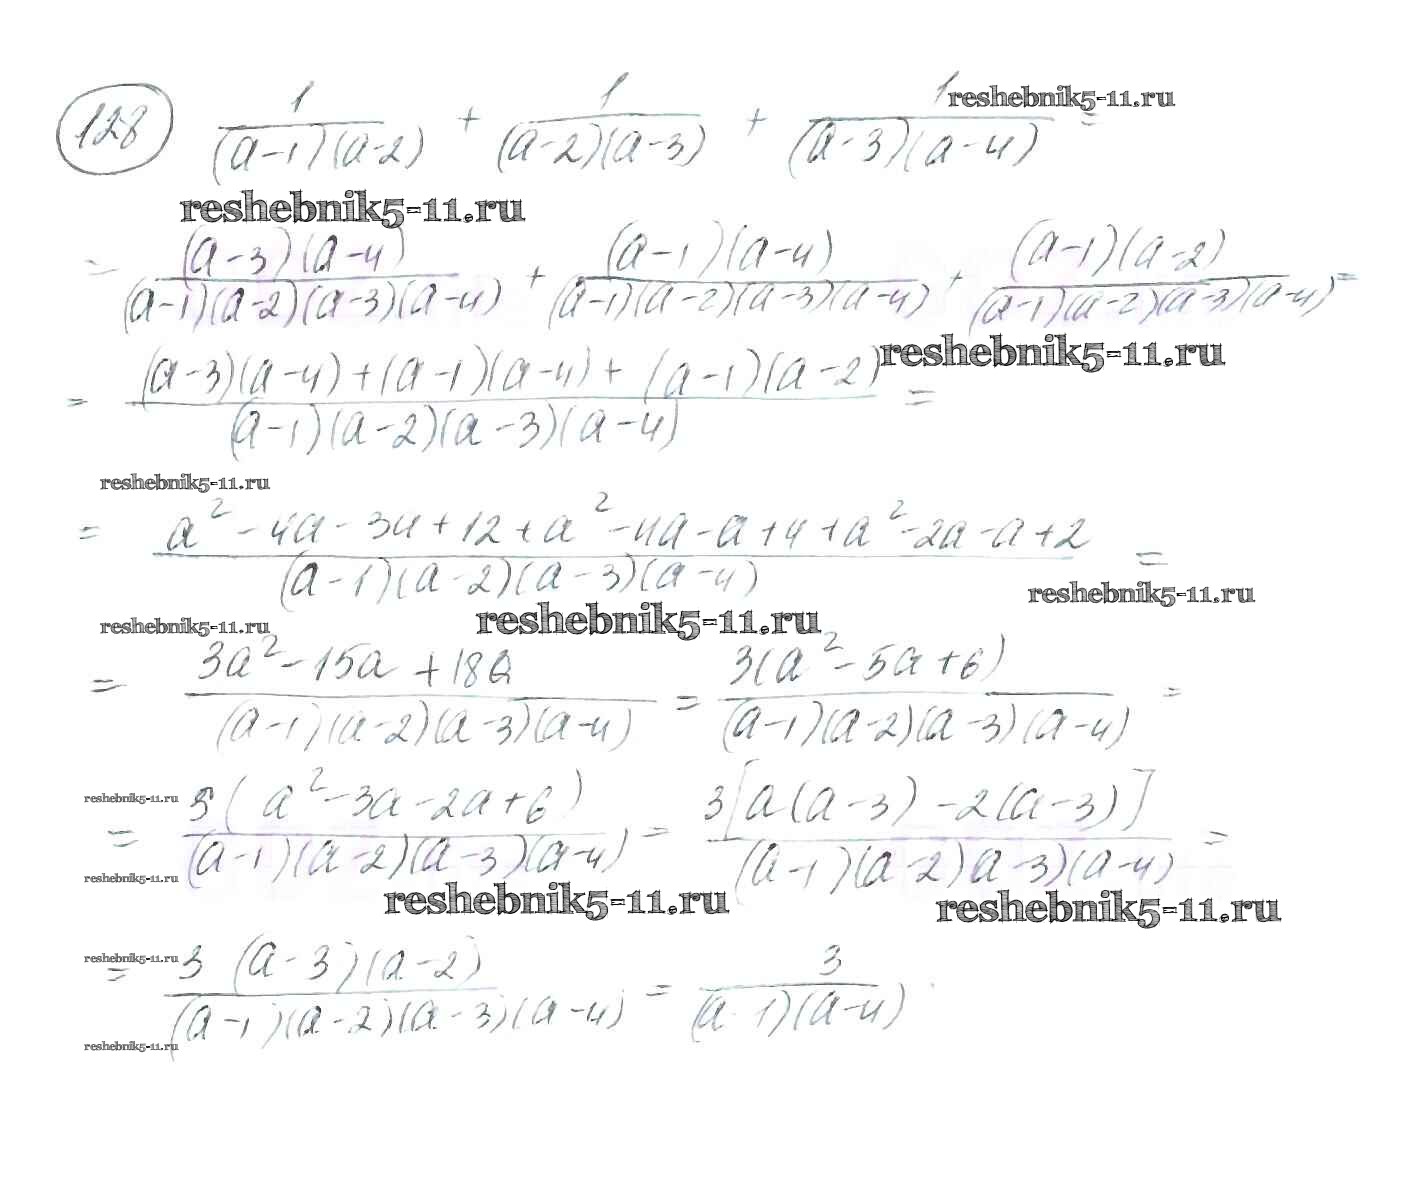 128 1/((a-1)(a-2)) + 1/((a-2)(a-3)) + 1/((a-3)(a-4)) =
reshebnik5-11.ru
reshebnik5-11.ru
= (a-3)(a-4)/((a-1)(a-2)(a-3)(a-4)) + (a-1)(a-4)/((a-1)(a-2)(a-3)(a-4)) + (a-1)(a-2)/((a-1)(a-2)(a-3)(a-4)) =
reshebnik5-11.ru
= ((a-3)(a-4)+(a-1)(a-4)+(a-1)(a-2))/((a-1)(a-2)(a-3)(a-4)) =
reshebnik5-11.ru
= (a²-4a-3a+12+a²-4a-a+4+a²-2a-a+2)/((a-1)(a-2)(a-3)(a-4)) =
reshebnik5-11.ru
reshebnik5-11.ru
reshebnik5-11.ru
= (3a²-15a+18)/((a-1)(a-2)(a-3)(a-4)) = 3(a²-5a+6)/((a-1)(a-2)(a-3)(a-4)) =
reshebnik5-11.ru
= 3(a²-3a-2a+6)/((a-1)(a-2)(a-3)(a-4)) = 3[a(a-3)-2(a-3)]/((a-1)(a-2)a-3)(a-4)) =
reshebnik5-11.ru
reshebnik5-11.ru
reshebnik5-11.ru
reshebnik5-11.ru
= 3(a-3)(a-2)/((a-1)(a-2)(a-3)(a-4)) = 3/((a-1)(a-4))
reshebnik5-11.ru